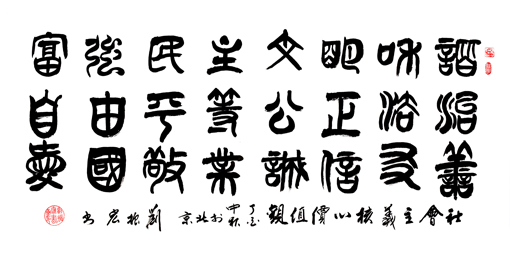 富強民主文明和諧
自由平等公正法治
愛國敬業誠信友善
社會主義核心價值觀 丁酉中秋於北京 劉振宏书